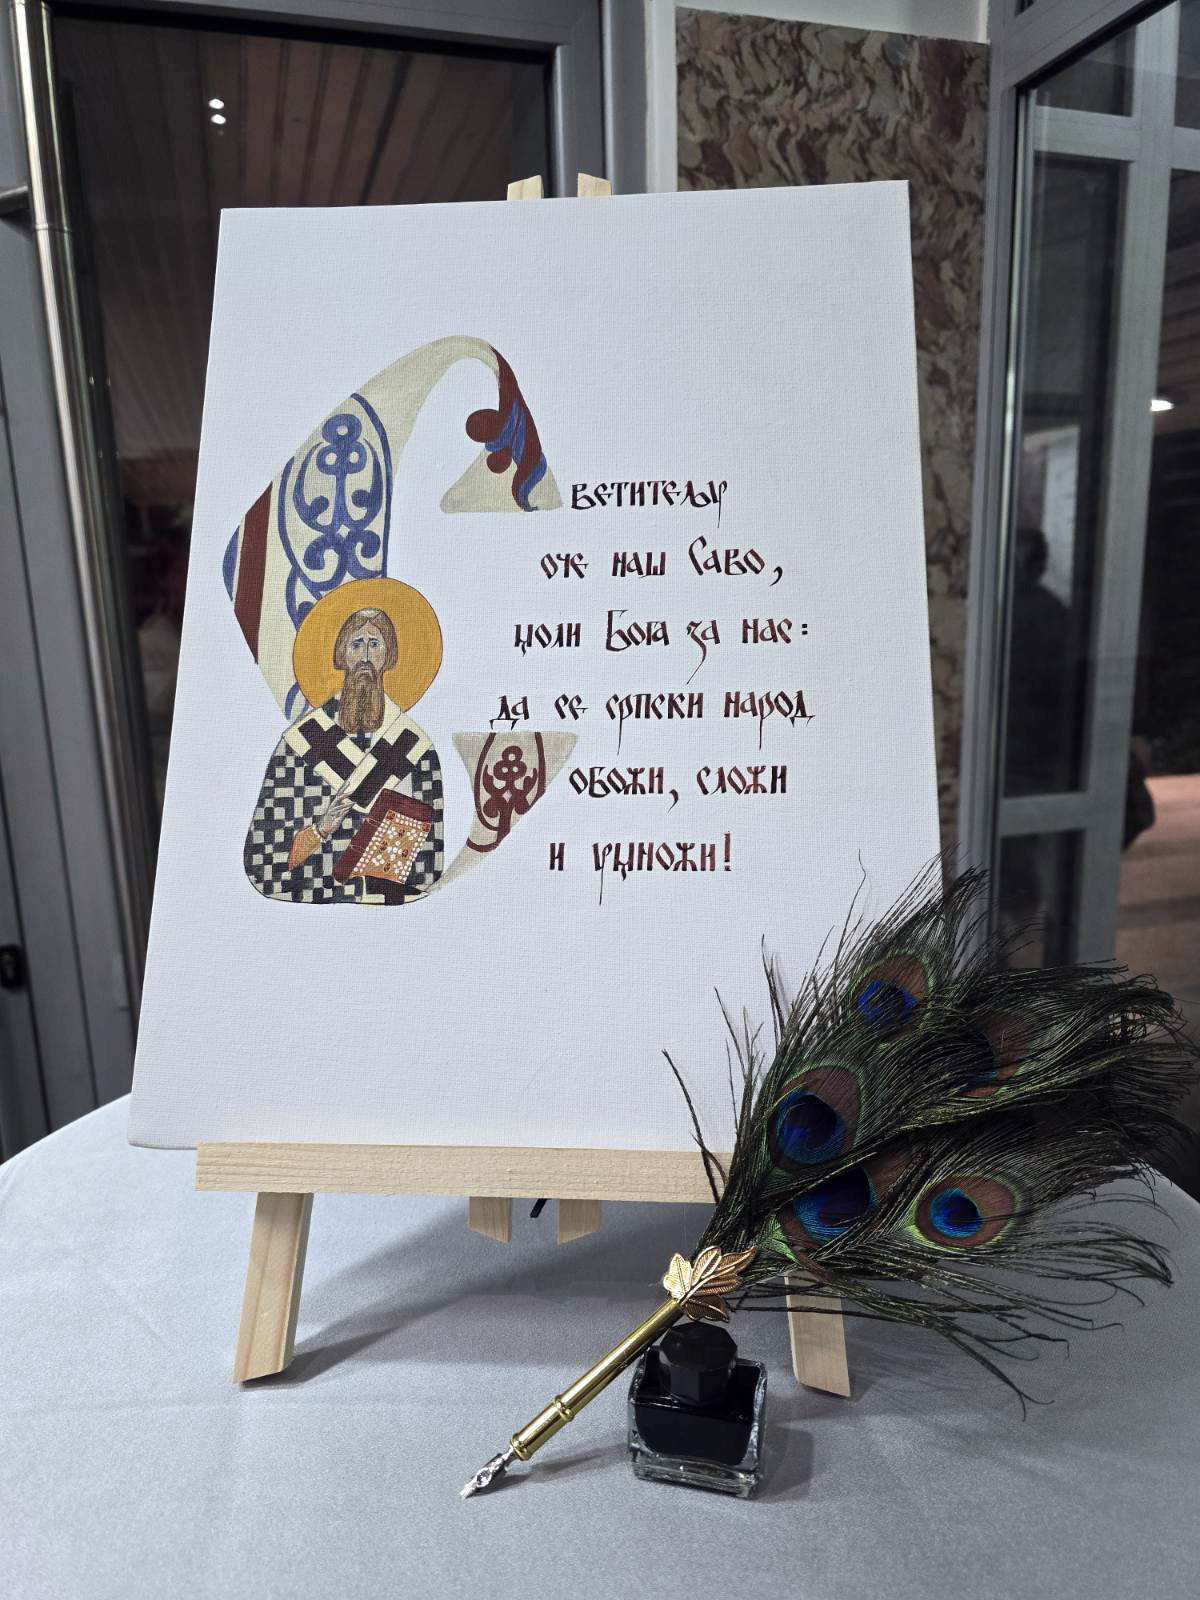 Светитељу
оче наш Саво,
моли Бога за нас:
да се српски народ
обожи, сложи
и умножи!